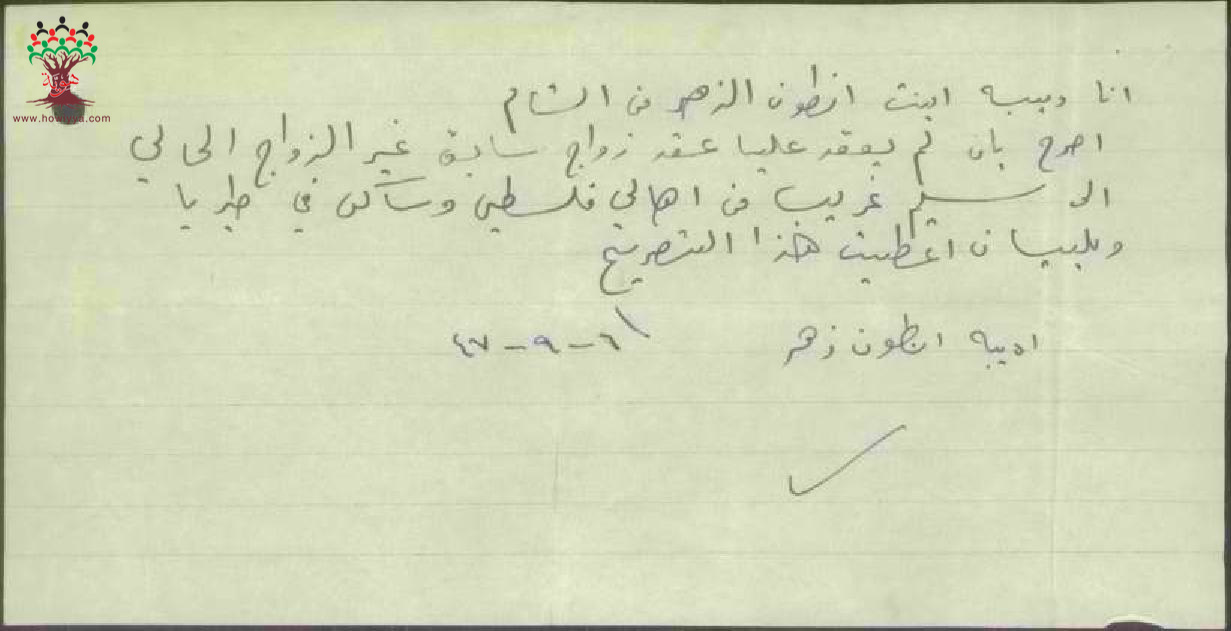 هوية
www.howiyya.com
انا ديبه ابنت انطون الزهر من الشام
اصرح بان لم يعقد عليا عقد زواج سابق غير الزواج الحالي
الى سليم غريب من اهالي فلسطين وساكن في طبريا
وبلبيان اعطيت هذا التصريح
اديبه انطون زهر
٦-٩-٤٧